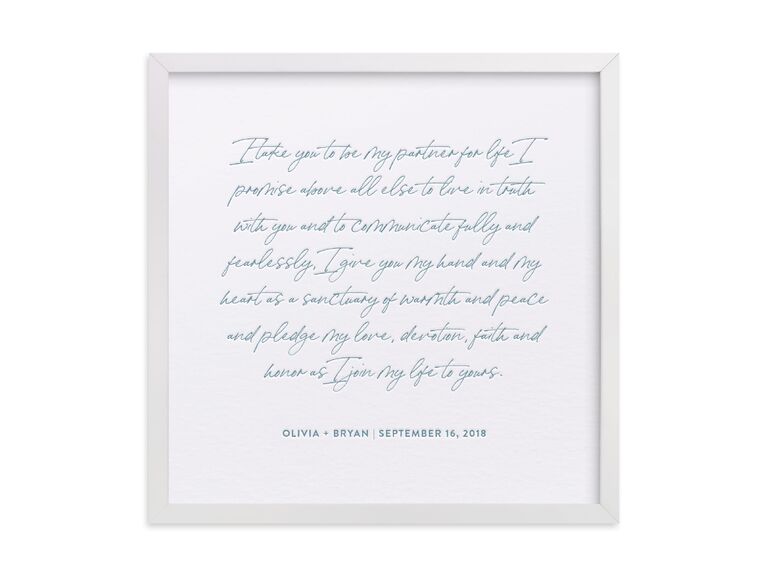 I take you to be my partner for life I
promise above all else to live in truth
with you and to communicate fully and
fearlessly, I give you my hand and my
heart as a sanctuary of warmth and peace
and pledge my love, devotion, faith and
honor as I join my life to yours.
OLIVIA + BRYAN | SEPTEMBER 16, 2018